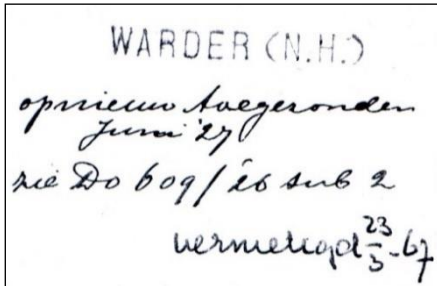 WARDER (N.H.)
opnieuw toegezonden
Juni '27
zie Do 609/26 sub 2
vernietigd 23/3-67